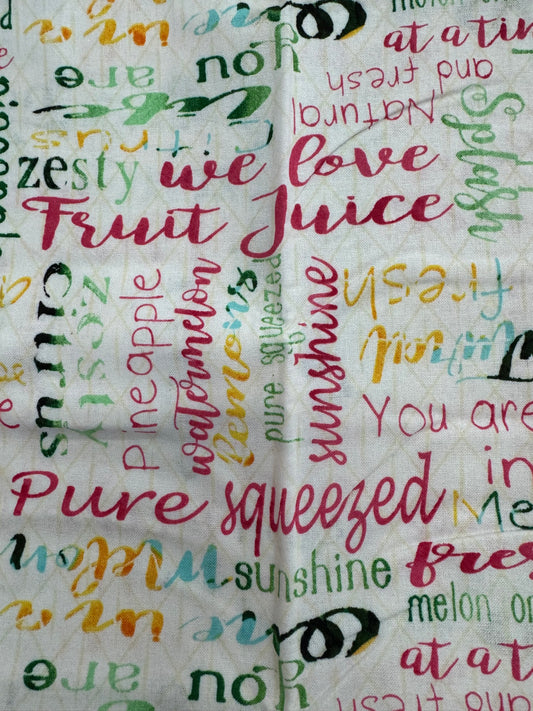 melon or
at a tim
you
are
Natural
and fresh
Citrus
Splash
zesty we love
Fruit Juice
pineapple
citrus
zesty
Pineapple
watermelon
Lemon
pure squeezed
sunshine
fresh
You are
in
Pure squeezed
Me
Melon
sunshine
fres
melon or
you
are
at a tim
and fresh